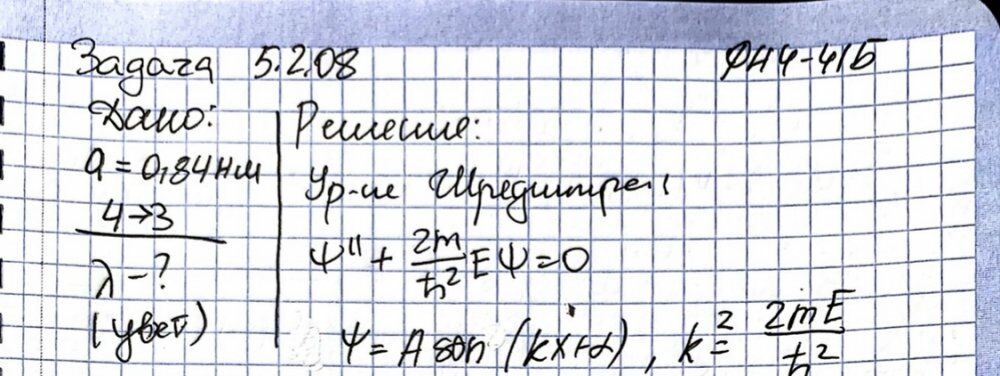 Задача 5.2.08 ФН4-41Б
Дано:
a = 0,84 нм
4→3
λ - ?
(цвет)
Решение:
Ур-ие Шредингера:
Ψ'' + 2m/ħ² EΨ = 0
Ψ = A sin (kx+α), k² = 2mE/ħ²